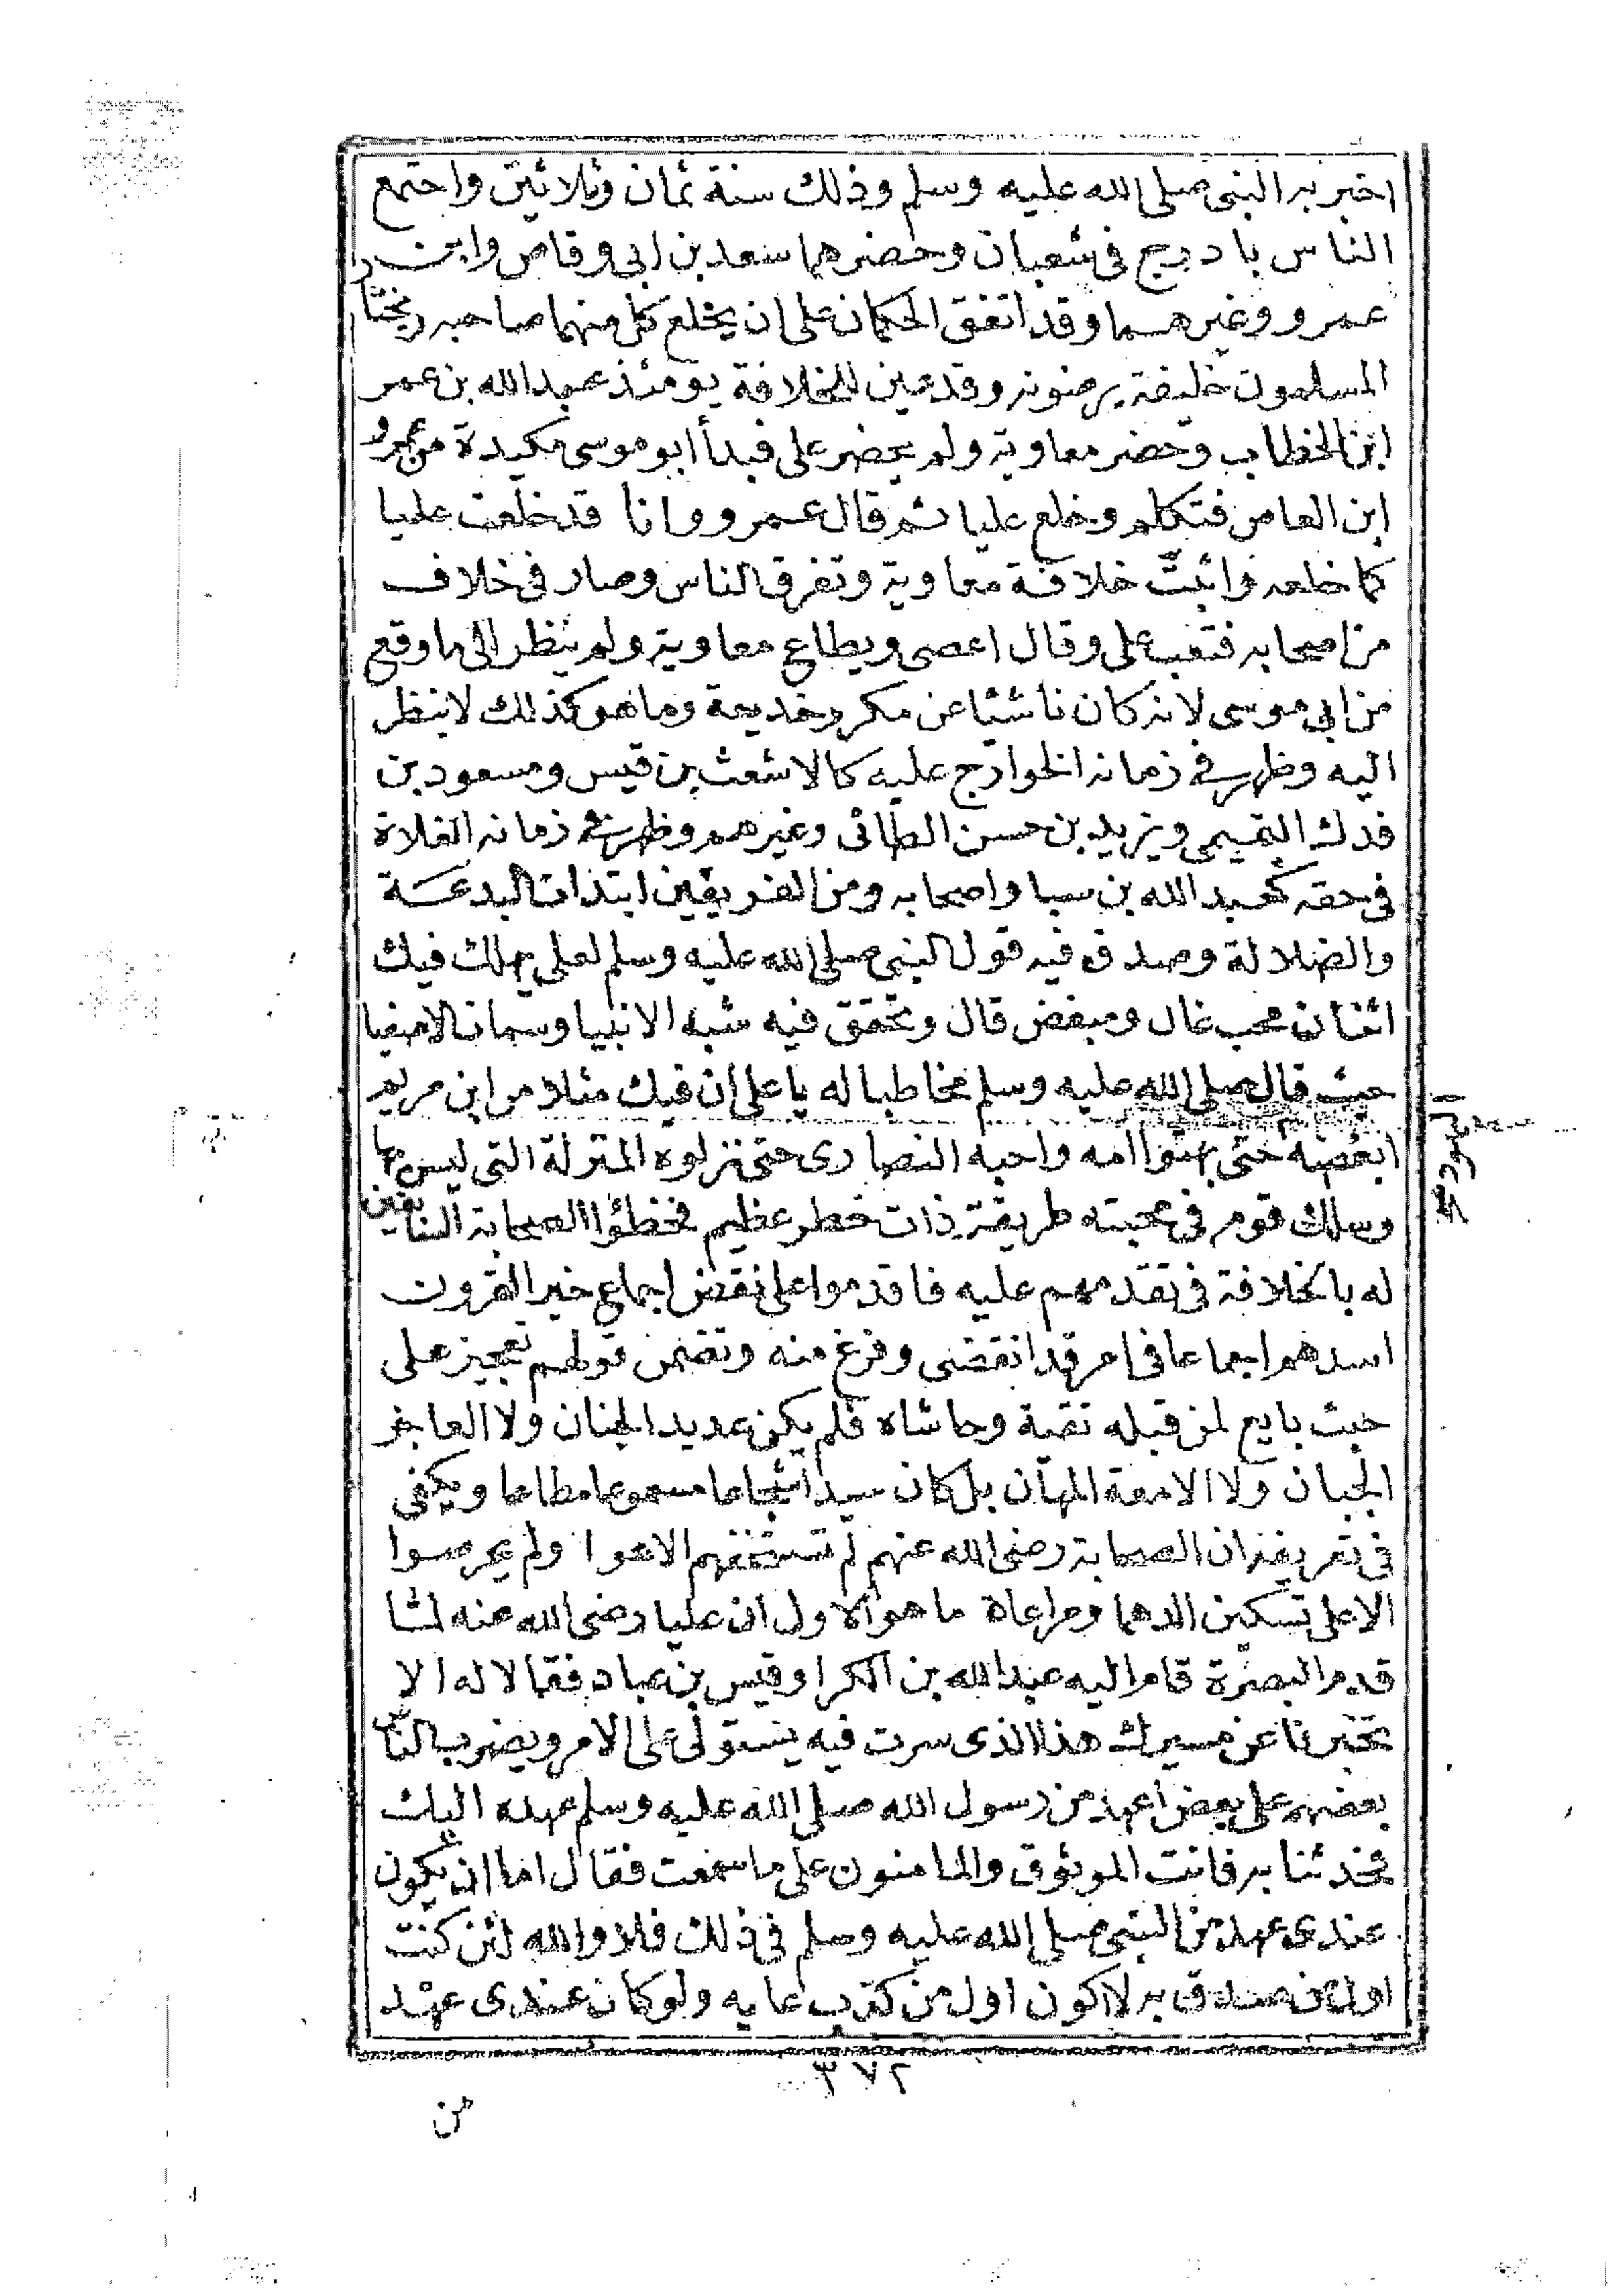 اخبر به النبي صلى الله عليه وسلم وذلك سنة ثمان وثلاثين واجتمع
الناس با درج في شعبان وحضرهما سعد بن ابي وقاص وابن
عمرو وغيرهما وقد اتفق الحكمان على ان يخلع كل منهما صاحبه ويختار
المسلمون خليفة يرضونه وقد عين للخلافة يومئذ عبد الله بن عمر
ابن الخطاب وحضر معاوية ولم يحضر على فبدأ ابو موسى مكيدة من عمرو
ابن العاص فتكلم وخلع عليا ثم قال عمرو وانا قد خلعت عليا
كما خلعه واثبت خلافة معاوية وتفرق الناس وصار في خلاف
من اصحابه فتعب على وقال اعصى ويطاع معاوية ولم ينظر الى ما وقع
من ابي موسى لانه كان ناشئا عن مكر وخديعة وما هو كذلك لا ينظر
اليه وظهر في زمانه الخوارج عليه كالاشعث بن قيس ومسعود بن
فدك التميمي ويزيد بن حسن الطائي وغيرهم وظهر في زمانه الغلاة
في حقه كعبد الله بن سبا واصحابه ومن الفريقين ابتدات البدعة
والضلالة وصدق فيه قول النبي صلى الله عليه وسلم لعلى يهلك فيك
اثنان محب غال ومبغض قال وتحقق فيه شبه الانبيا وسمات الاصفيا
حيث قال صلى الله عليه وسلم مخاطبا له يا على ان فيك مثلا من ابن مريم
ابغضته حتى بهتوا امه واحبه النصارى حتى نزلوه المنزلة التي ليس بها
اليهود صح
وسلك قوم في محبته طريقة ذات خطر عظيم فخطؤا الصحابة التابعين
له بالخلافة في تقدمهم عليه فاقدموا على نقض اجماع خير القرون
اسدهم اجماعا في امر قد انقضى وفرغ منه وتضمن قولهم تعجيز على
حيث بايع لمن قبله تقية وحاشاه فلم يكن عديد الجنان ولا العاجز
الجبان ولا الامعة المهان بل كان سيدا شجاعا مسموعا مطاعا ويكفي
في تعريف ان الصحابة رضي الله عنهم لم تستخفهم الاهوا ولم يحرصوا
الا على تسكين الدهما ومراعاة ما هو الاولى ان عليا رضي الله عنه لما
قدم البصرة قام اليه عبد الله بن الكوا وقيس بن عباد فقالا له الا
تخبرنا عن مسيرك هذا الذي سرت فيه يستولى على الامر ويضرب الناس
بعضهم على بعض اعهد من رسول الله صلى الله عليه وسلم عهده اليك
فحدثنا به فانت الموثوق والمامون على ما سمعت فقال اما ان يكون
عندي عهد من النبي صلى الله عليه وسلم في ذلك فلا والله لئن كنت
اول من صدق به لا اكون اول من كذب عليه ولو كان عندي عهد
٣٧٢
من